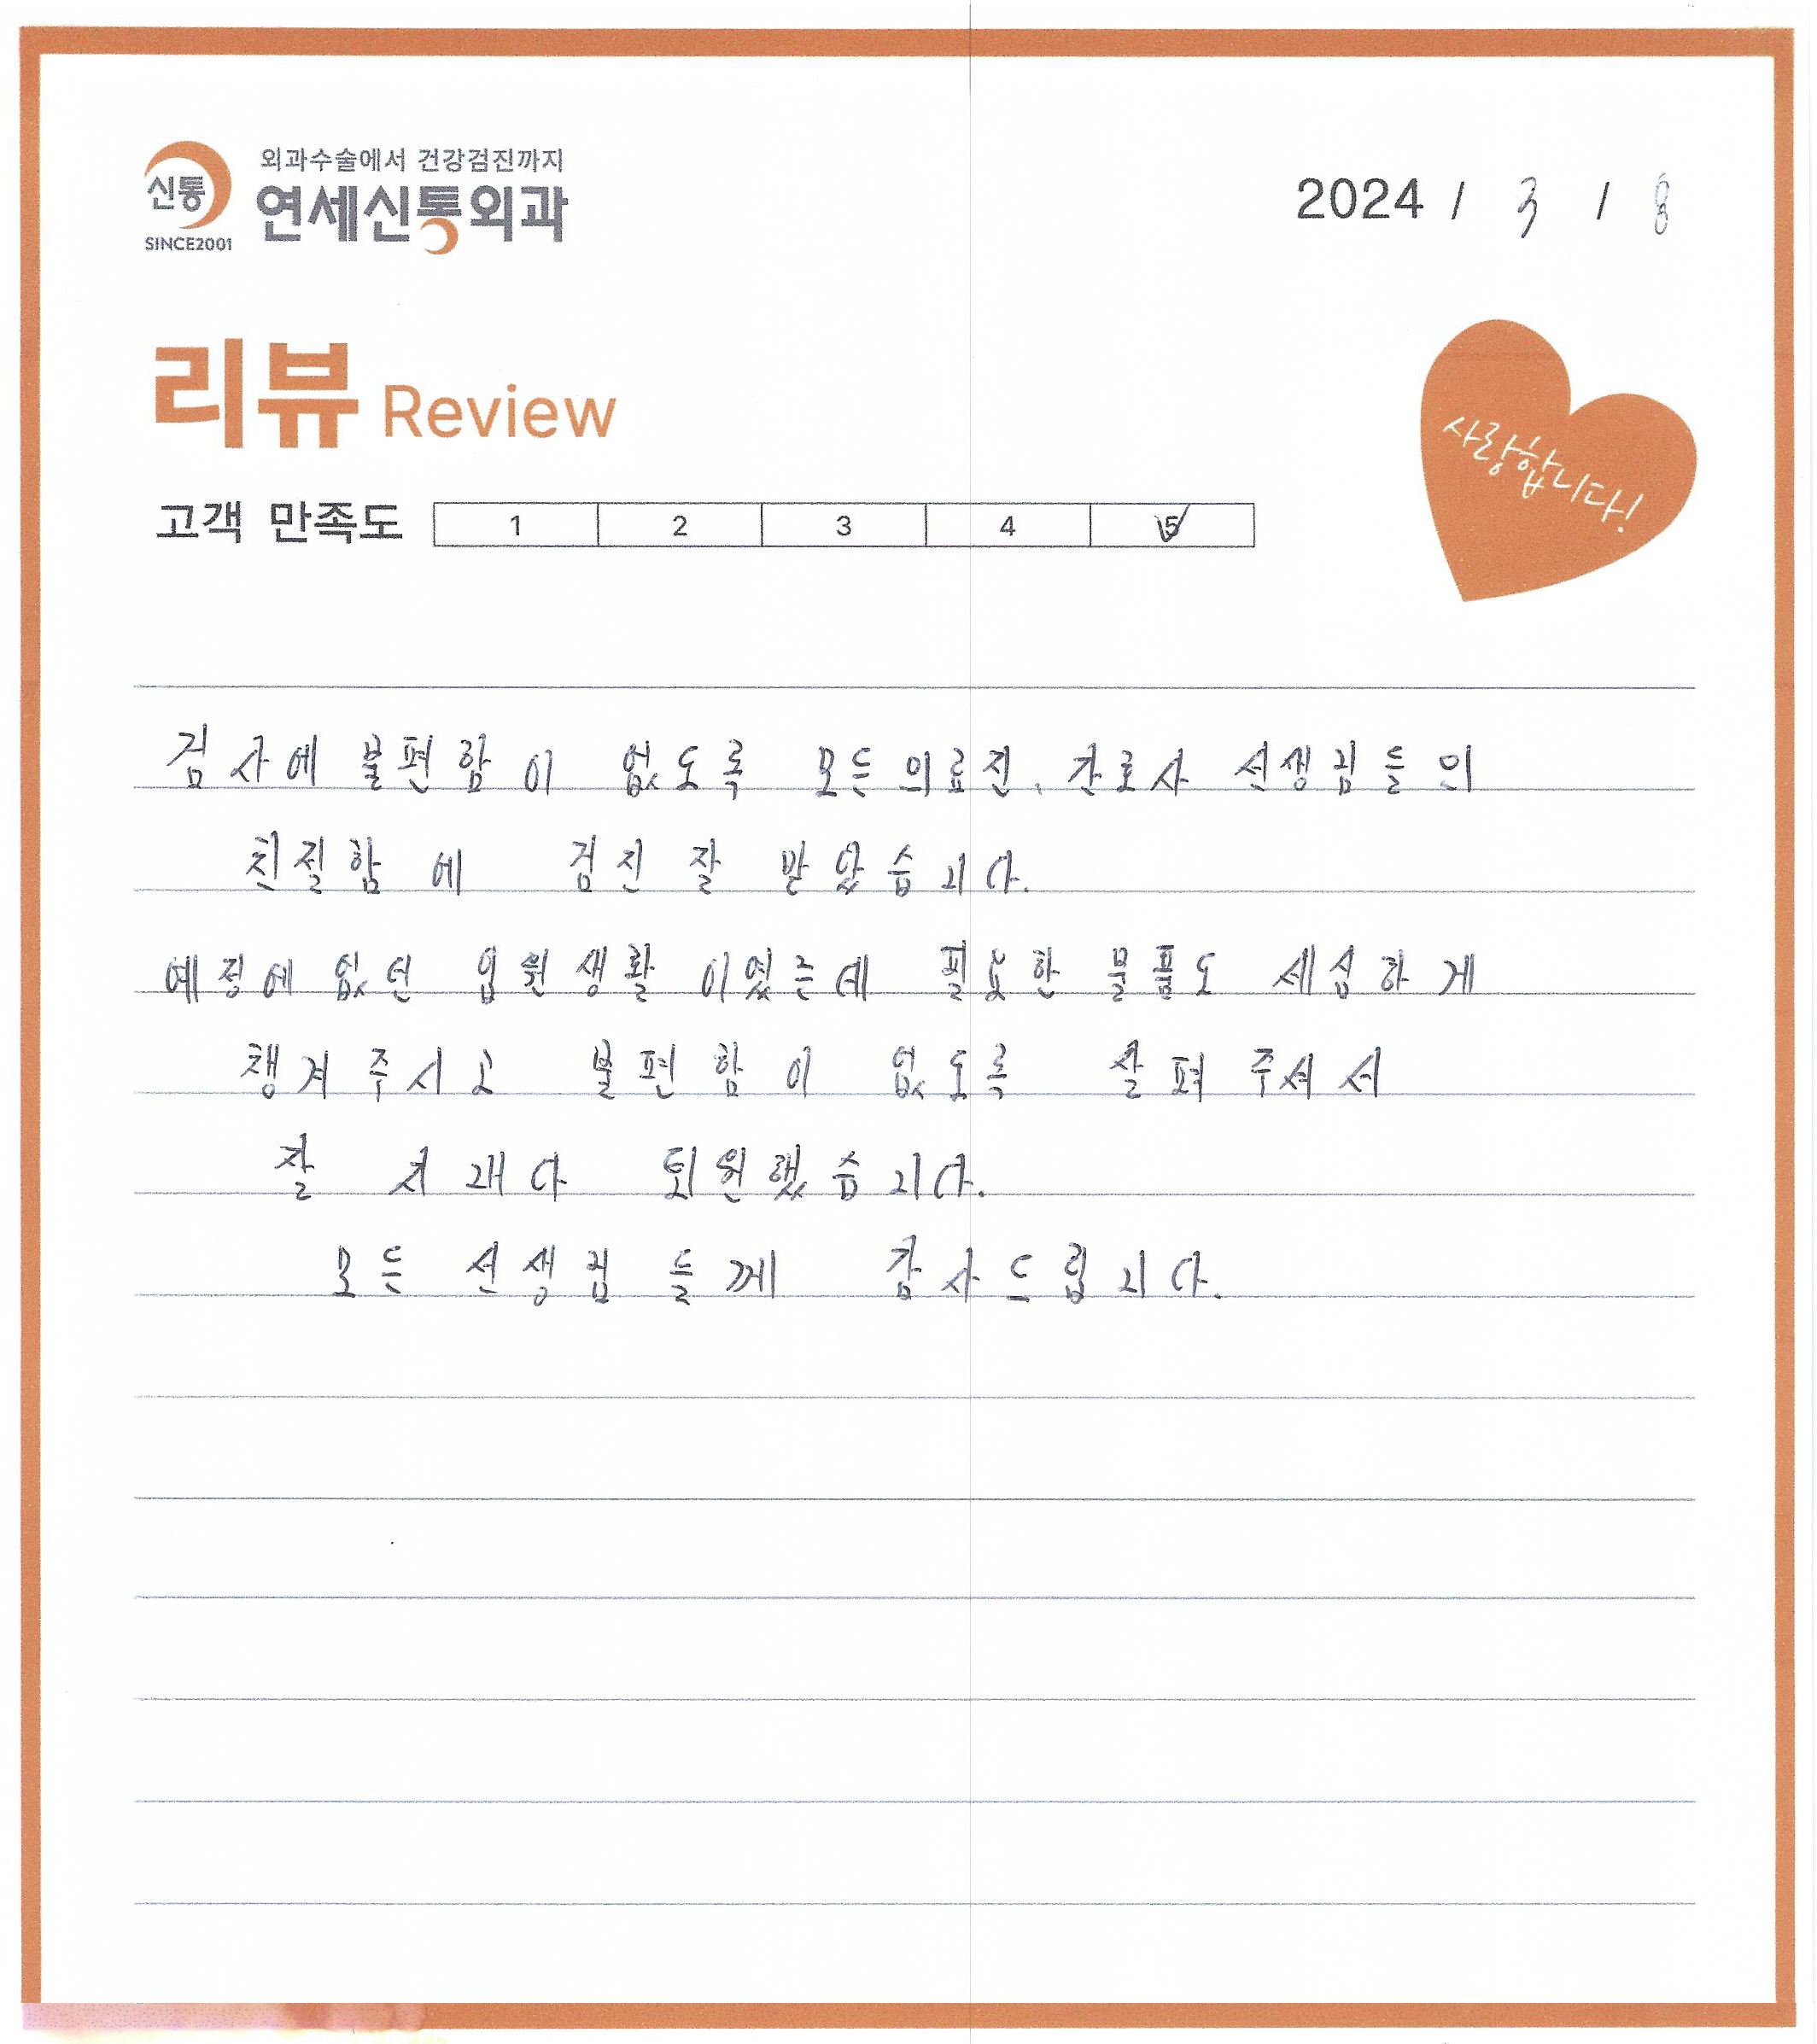 신통
SINCE2001
외과수술에서 건강검진까지
연세신통외과
2024 / 3 / 8
리뷰 Review
사랑합니다!
고객 만족도 1 2 3 4 5
검사에 불편함이 없도록 모든 의료진, 간호사 선생님들의
친절함에 검진 잘 받았습니다.
예정에 없던 입원생활이였는데 필요한 물품도 세심하게
챙겨주시고 불편함이 없도록 살펴주셔서
잘 지내다 퇴원했습니다.
모든 선생님들께 감사드립니다.